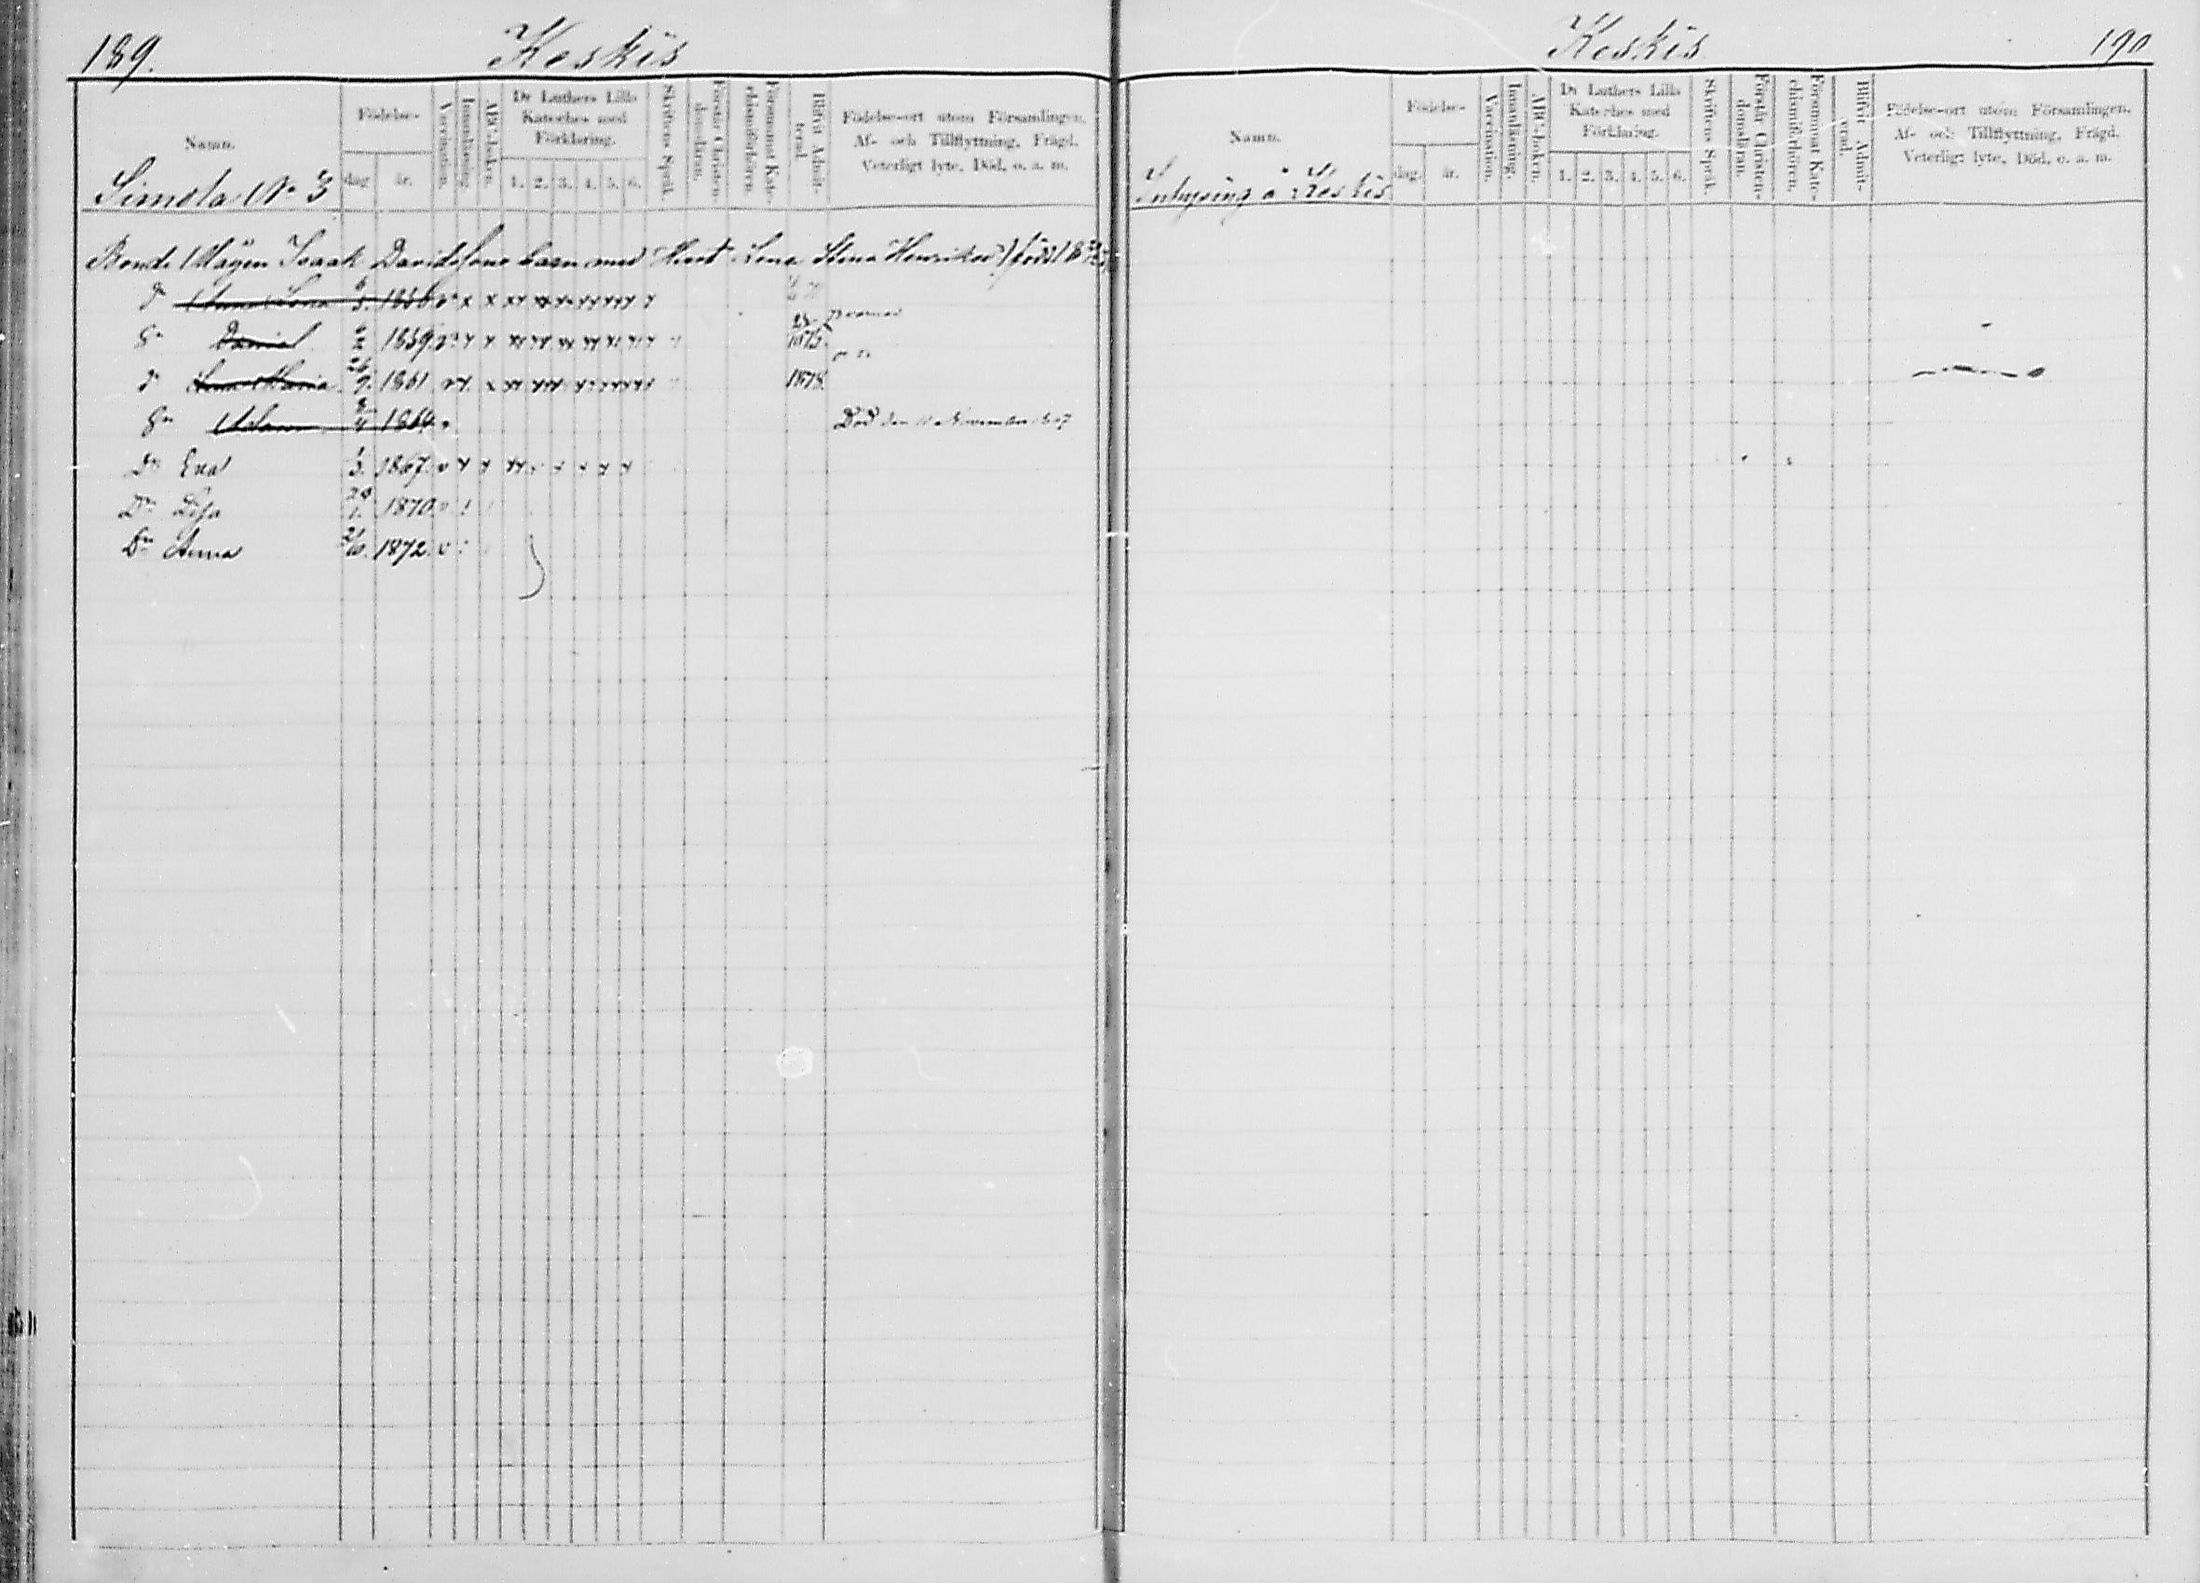 189.
Keskis
Namn.
Födelse-
dag
år.
Vaccination.
Innanläsning
ABC-boken.
Dr Luthers Lilla
Kateches med
Förklaring.
1. 2. 3. 4. 5. 6.
Skriftens Språk.
Förstår Christen-
domsläran.
Försummat Kate-
chismiförhören
Blifvit Admit-
terad
Födelse-ort utom Församlingen.
Af- och Tillflyttning, Frägd.
Veterligt lyte, Död, o. a. m.
Simola No 3
Bonde Mågen Isaak Davidssons barn med Hust. Lena Stina Henriksd
Lena 5. 1856
Daniel 1859 1875
Maria 26/9. 1861 1878.
Adam 4 1864 Död den 11 November
Dr Eva 1/3. 1867.
Dr Lisa 1. 1870
Dr Anna 1872.
Keskis
190
Namn.
Födelse-
dag.
år.
Vaccination.
Innanläsning.
ABC-boken.
Dr Luthers Lilla
Kateches med
Förklaring.
1. 2. 3. 4. 5. 6.
Skriftens Språk.
Förstår Christen-
domsläran.
Försummat Kate-
chismiförhören.
Blifvit Admit-
terad.
Födelse-ort utom Församlingen.
Af- och Tillflyttning, Frägd.
Veterligt lyte, Död, o. a. m.
Inhysing å Keskis